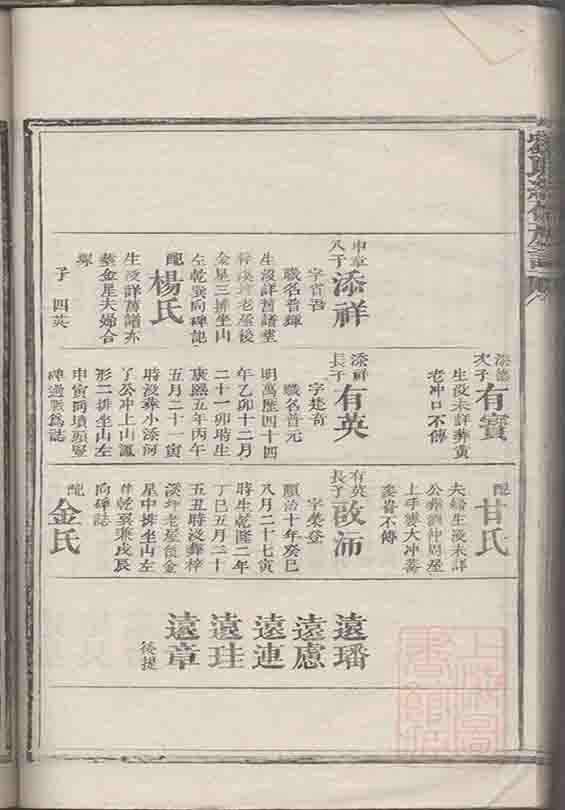 添祥
申章
八子
字賓吾
職名普輝
生沒詳舊譜葬
梓溪坪老屋後
金星三排坐山
左乾巽向碑記
配
楊氏
生沒詳舊譜亦
葬金星夫婦合
塚
子 四英
次子
有實
生沒未詳葬黃
老冲口不傳
添祥
長子
有英
字楚奇
職名普元
明萬歷四十四
年乙卯十二月
二十一卯時生
康熙五年丙午
五月二十 寅
時沒葬小添河
了公冲上山鳳
形二排坐山左
申寅向墳頭豎
碑過脈為誌
配
甘氏
夫婦生沒未詳
妾貴不傳
有英
長子
字榮登
順治十年癸巳
八月二十七寅
時生乾隆二年
丁巳五月二十
五丑時沒葬梓
溪坪老屋後金
星中排坐山左
向碑誌
配
金氏
遠璠
遠慮
遠連
遠珪
遠章
後提